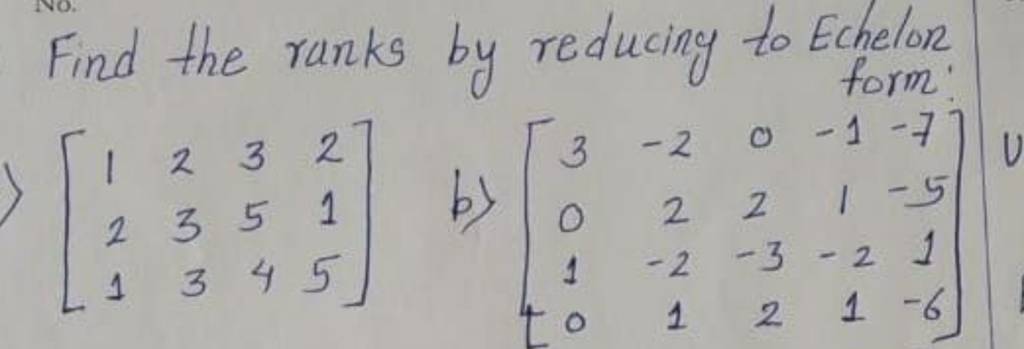 No.
Find the ranks by reducing to Echelon
form:
) [ 1 2 3 2
2 3 5 1
1 3 4 5 ]
b) [ 3 -2 0 -1 -7
0 2 2 1 -5
1 -2 -3 -2 1
0 1 2 1 -6 ]